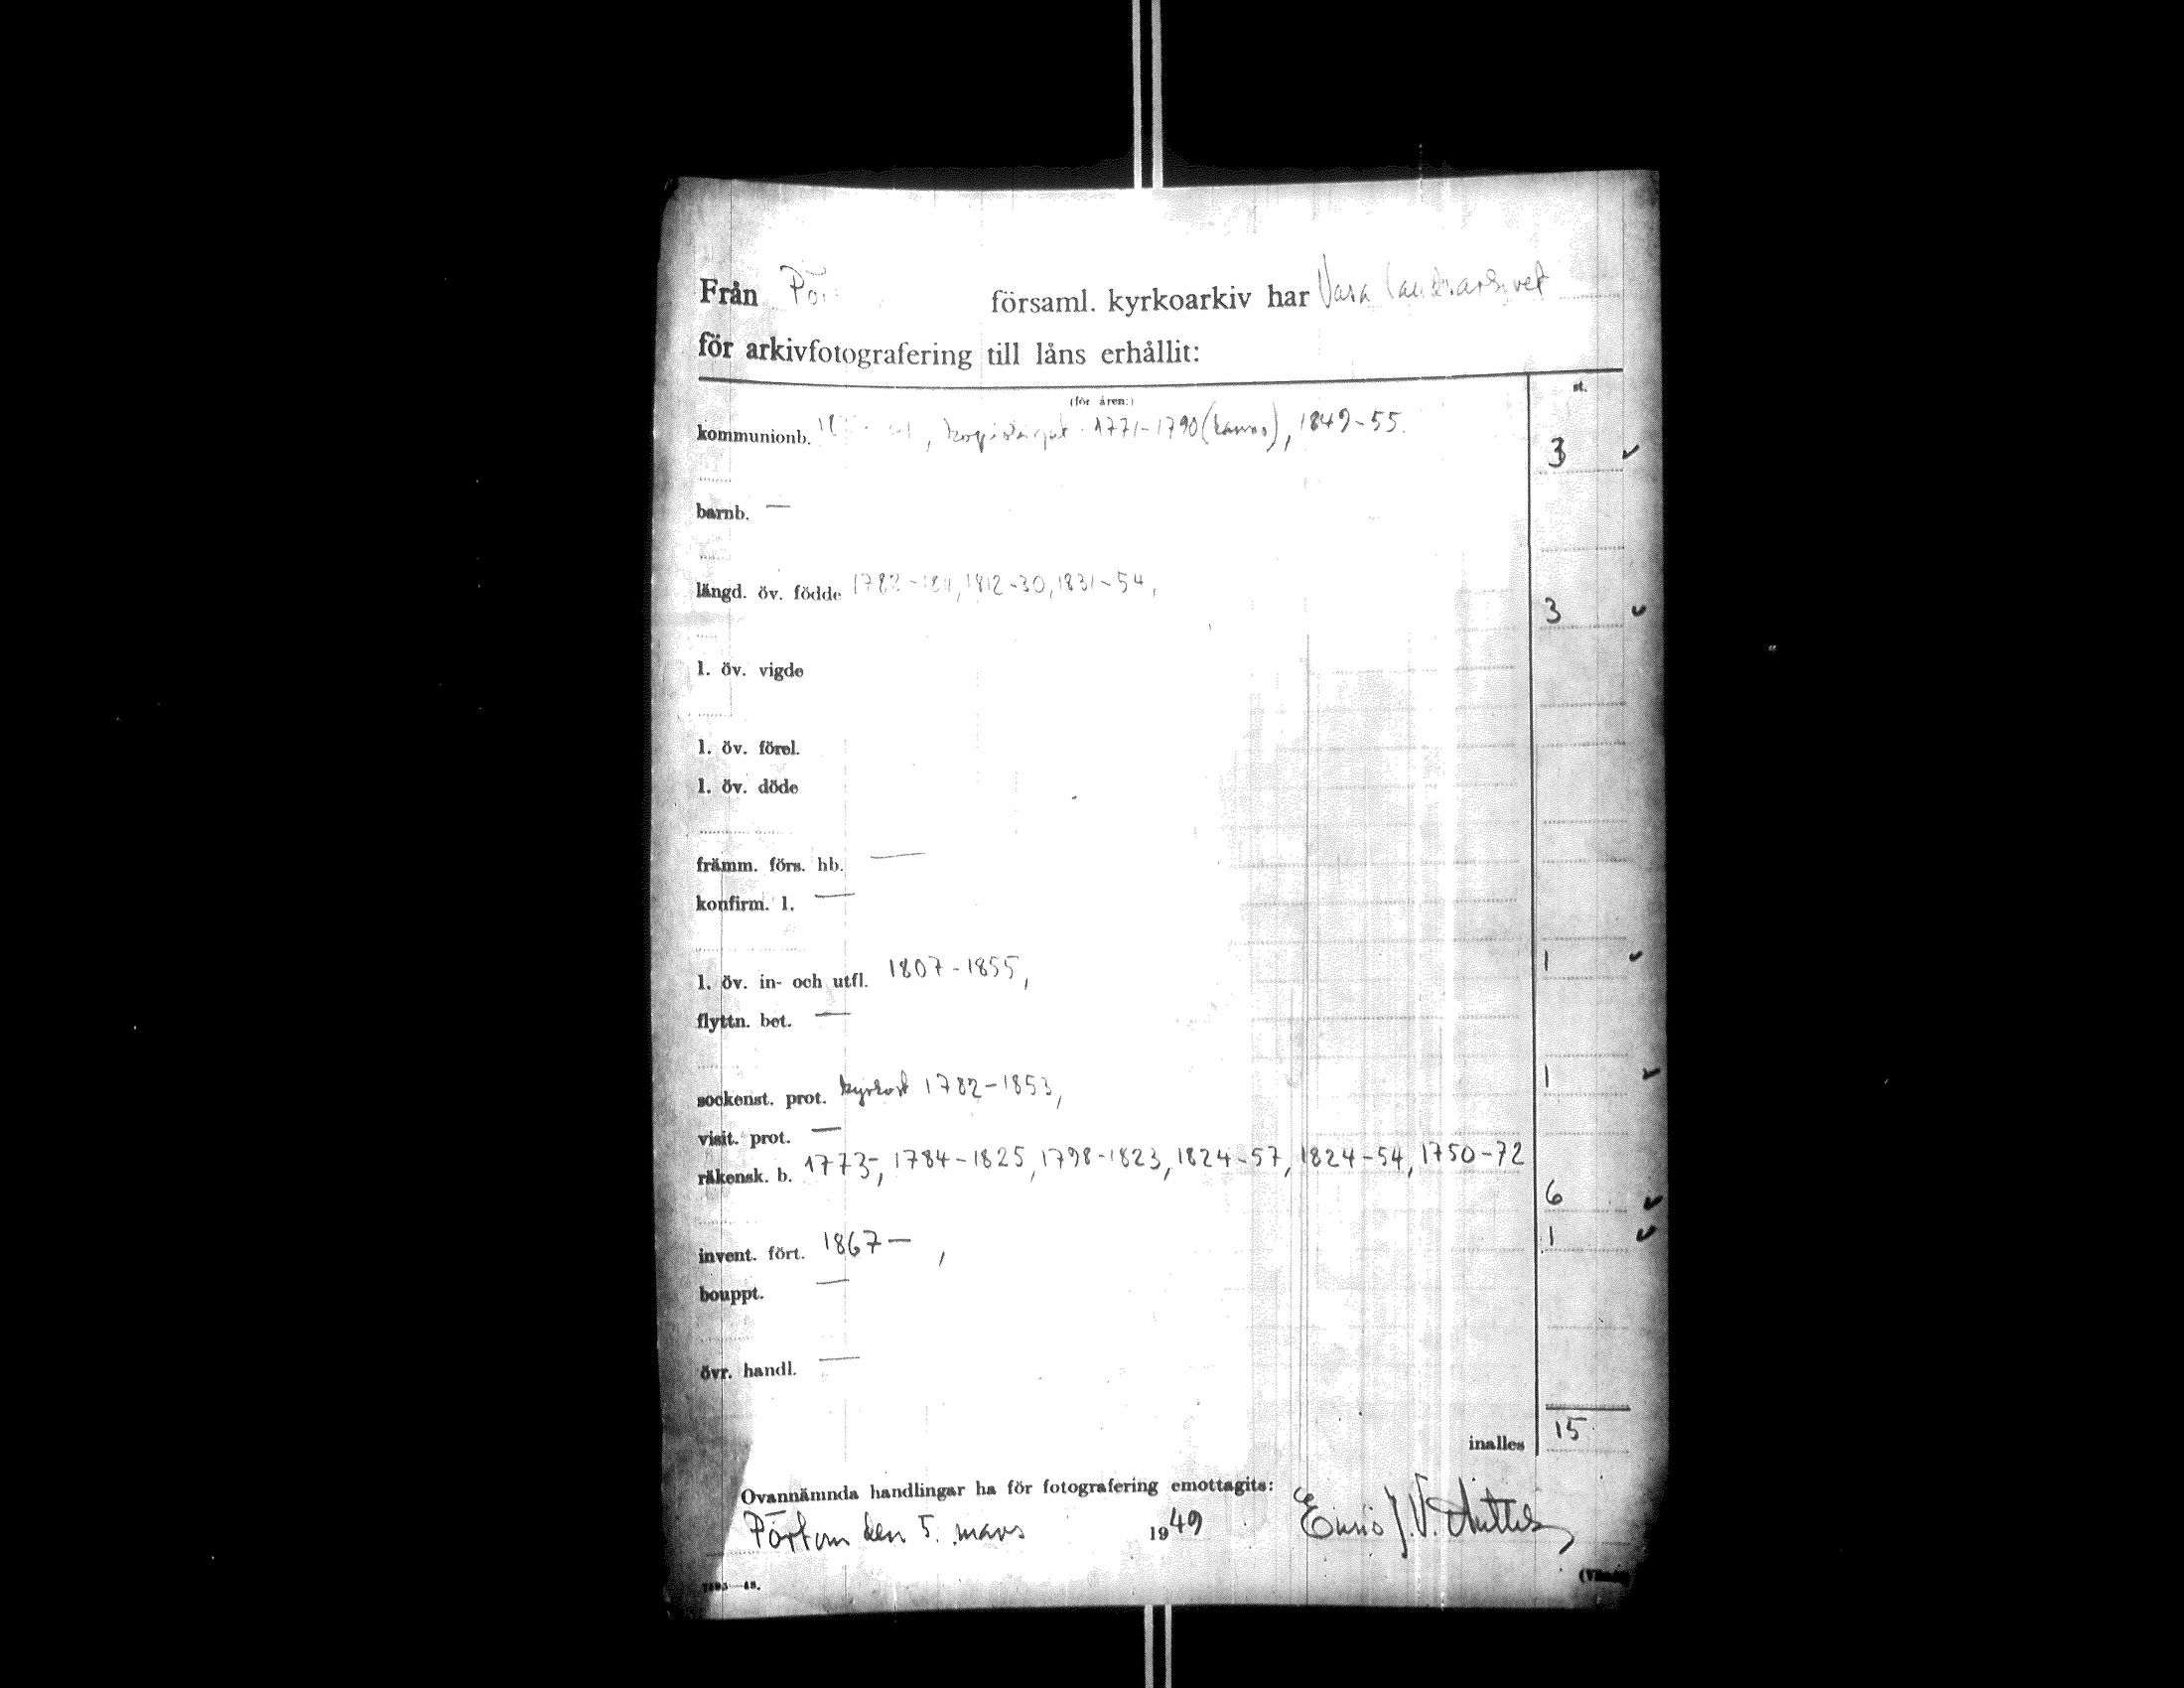 Från församl. kyrkoarkiv har Vasa landsarkivet
för arkivfotografering till låns erhållit:
(för åren:) st.
kommunionb. , 1771-1790 (kansi), 1849-55. 3 ✓
barnb. —
längd. öv. födde 1812-30, 1831-54, 3 ✓
l. öv. vigde
l. öv. förel.
l. öv. döde
främm. förs. hb. —
konfirm. l. —
l. öv. in- och utfl. 1807-1855, 1 ✓
flyttn. bet. —
sockenst. prot. kyrkost 1782-1853, 1 ✓
visit. prot. —
räkensk. b. 1773-, 1784-1825, 1798-1823, 1824-57, 1824-54, 1750-72 6 ✓
invent. fört. 1867— , 1 ✓
bouppt. —
övr. handl. —
inalles 15
Ovannämnda handlingar ha för fotografering emottagits:
Pörtom den 5. mars 1949 J.V.